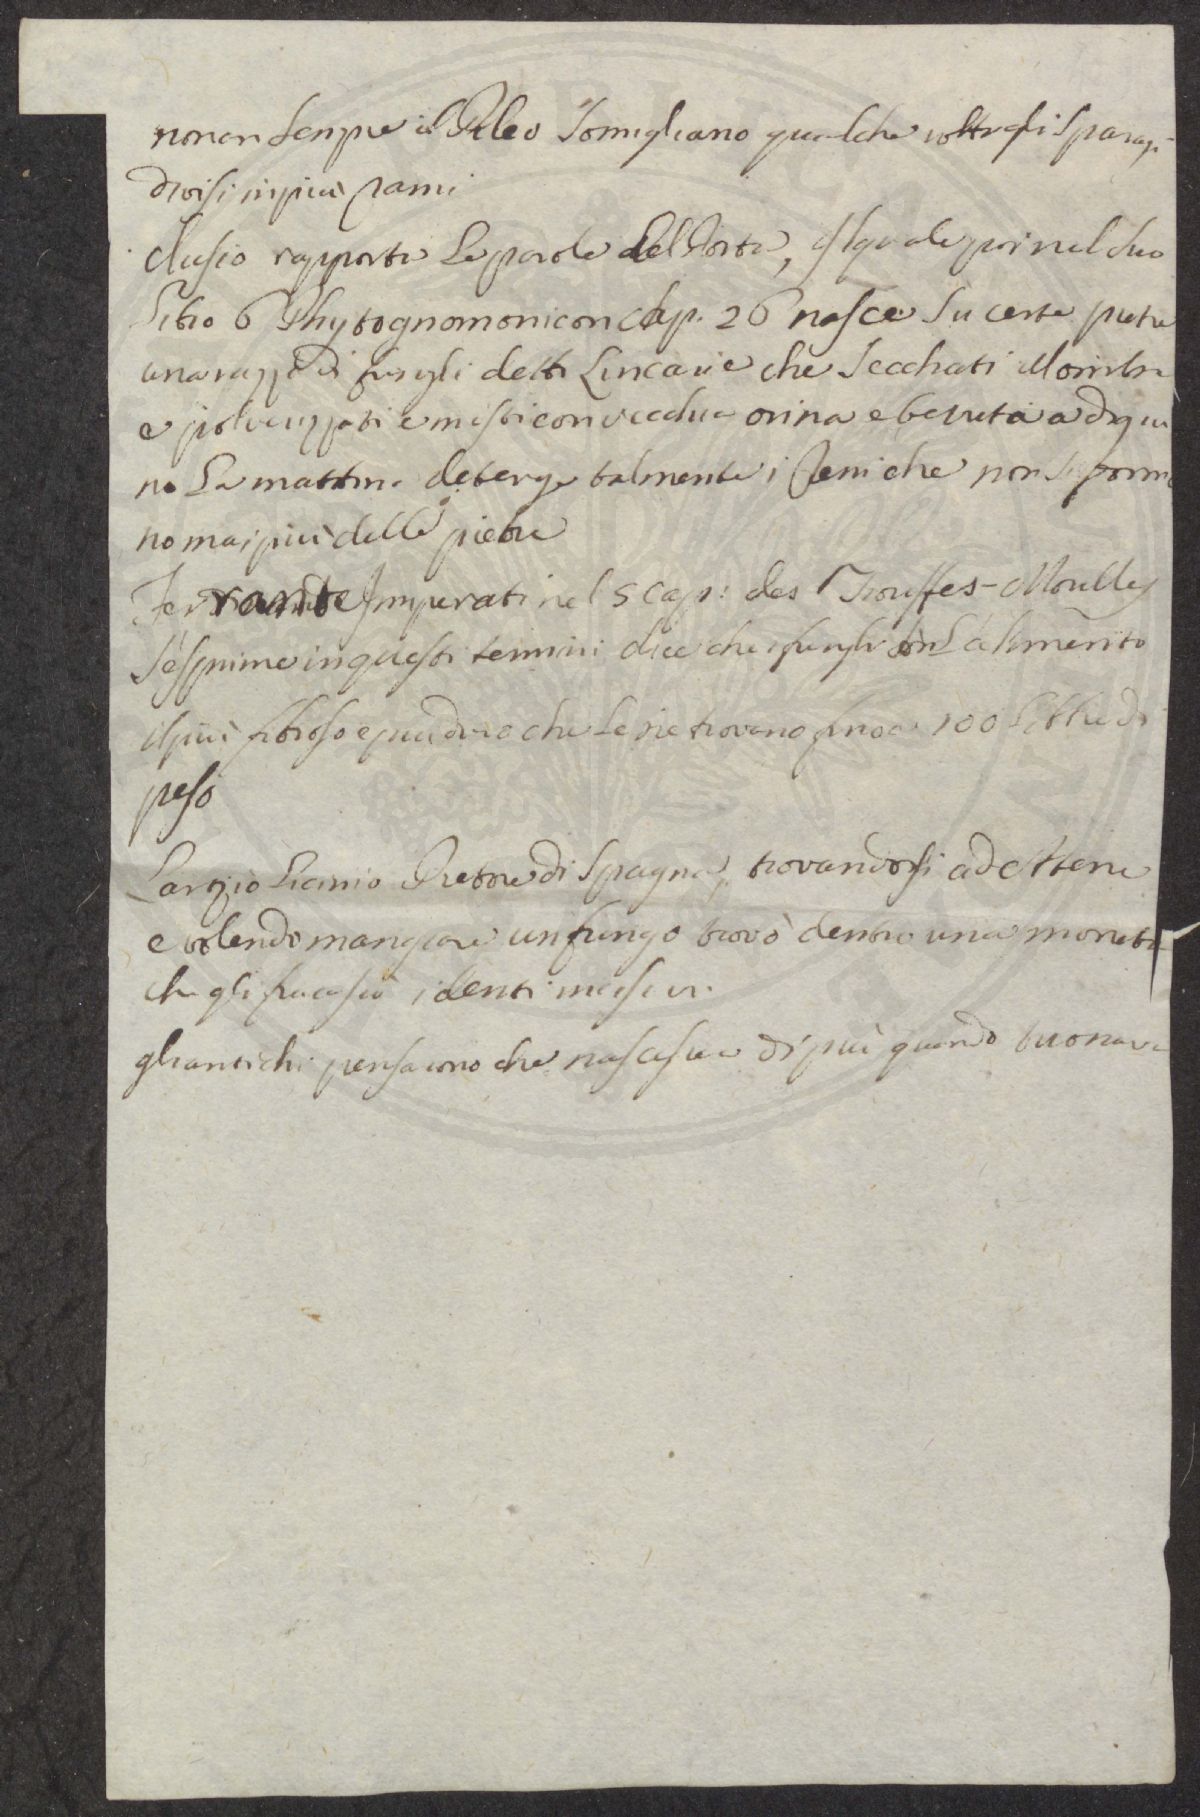 non an sempre il Pileo Somigliano qualche volta gli Sparagi
divisi in piu rami
Clusio rapporta Le parole del Porta, Il quale poi nel suo
Libro 6 Phytognomonicon Cap. 26 nasce Su certe pietre
una razza di funghi detti Lincarie che Secchati all'ombra
e polverizzati e misti con vecchia orina e bevuta a digiu
no La mattina deterge talmente i Reni che non si forma
no mai più delle pietre
Ferrante Imperati nel 5 cap: des Trouffes-Moulles
S'esprime in questi termini dice che i funghi son L'alimento
il più fibroso e più duro che se ne trovano fino a 100 Libre di
peso
Larzio Licinio Pretore di Spagna, trovandosi ad Attene
e volendo mangiare un fungo trovò dentro una moneta
che gli fracassò i denti incisivi.
gli antichi pensarono che nascesse di più quando tuonava